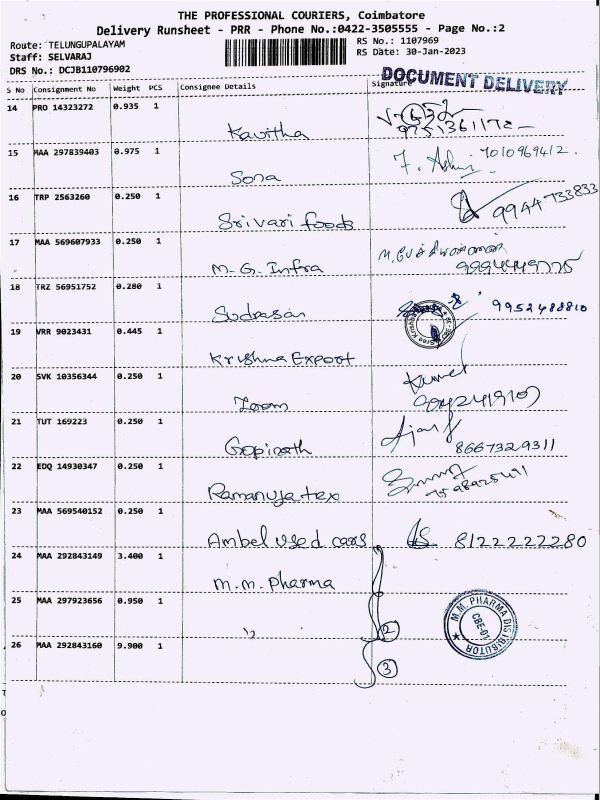 THE PROFESSIONAL COURIERS, Coimbatore
Delivery Runsheet - PRR - Phone No.:0422-3505555 - Page No.:2
Route: TELUNGUPALAYAM
RS No.: 1107969
Staff: SELVARAJ
RS Date: 30-Jan-2023
DRS No.: DCJB110796902
DOCUMENT DELIVERY
S No Consignment No Weight PCS Consignee Details Signature
14 PRO 14323272 0.935 1
Kavitha 9751361172
15 MAA 297839403 0.975 1
Sona 7010969412
16 TRP 2563260 0.250 1
Srivari foods 9944733833
17 MAA 569607933 0.250 1
M.G. Infra
18 TRZ 56951752 0.280 1
Sudrasan 9952488810
19 VRR 9023431 0.445 1
Krishna Export
20 SVK 10356344 0.250 1
Zoom Kumar
21 TUT 169223 0.250 1
Gopinath 8667329311
22 EDQ 14930347 0.250 1
Ramanuja tex
23 MAA 569540152 0.250 1
Ambel used cars 8122222280
24 MAA 292843149 3.400 1
M.M. Pharma
25 MAA 297923656 0.950 1
"
2
M.M. PHARMA DISTRIBUTOR
CBE-01
26 MAA 292843160 9.900 1
3